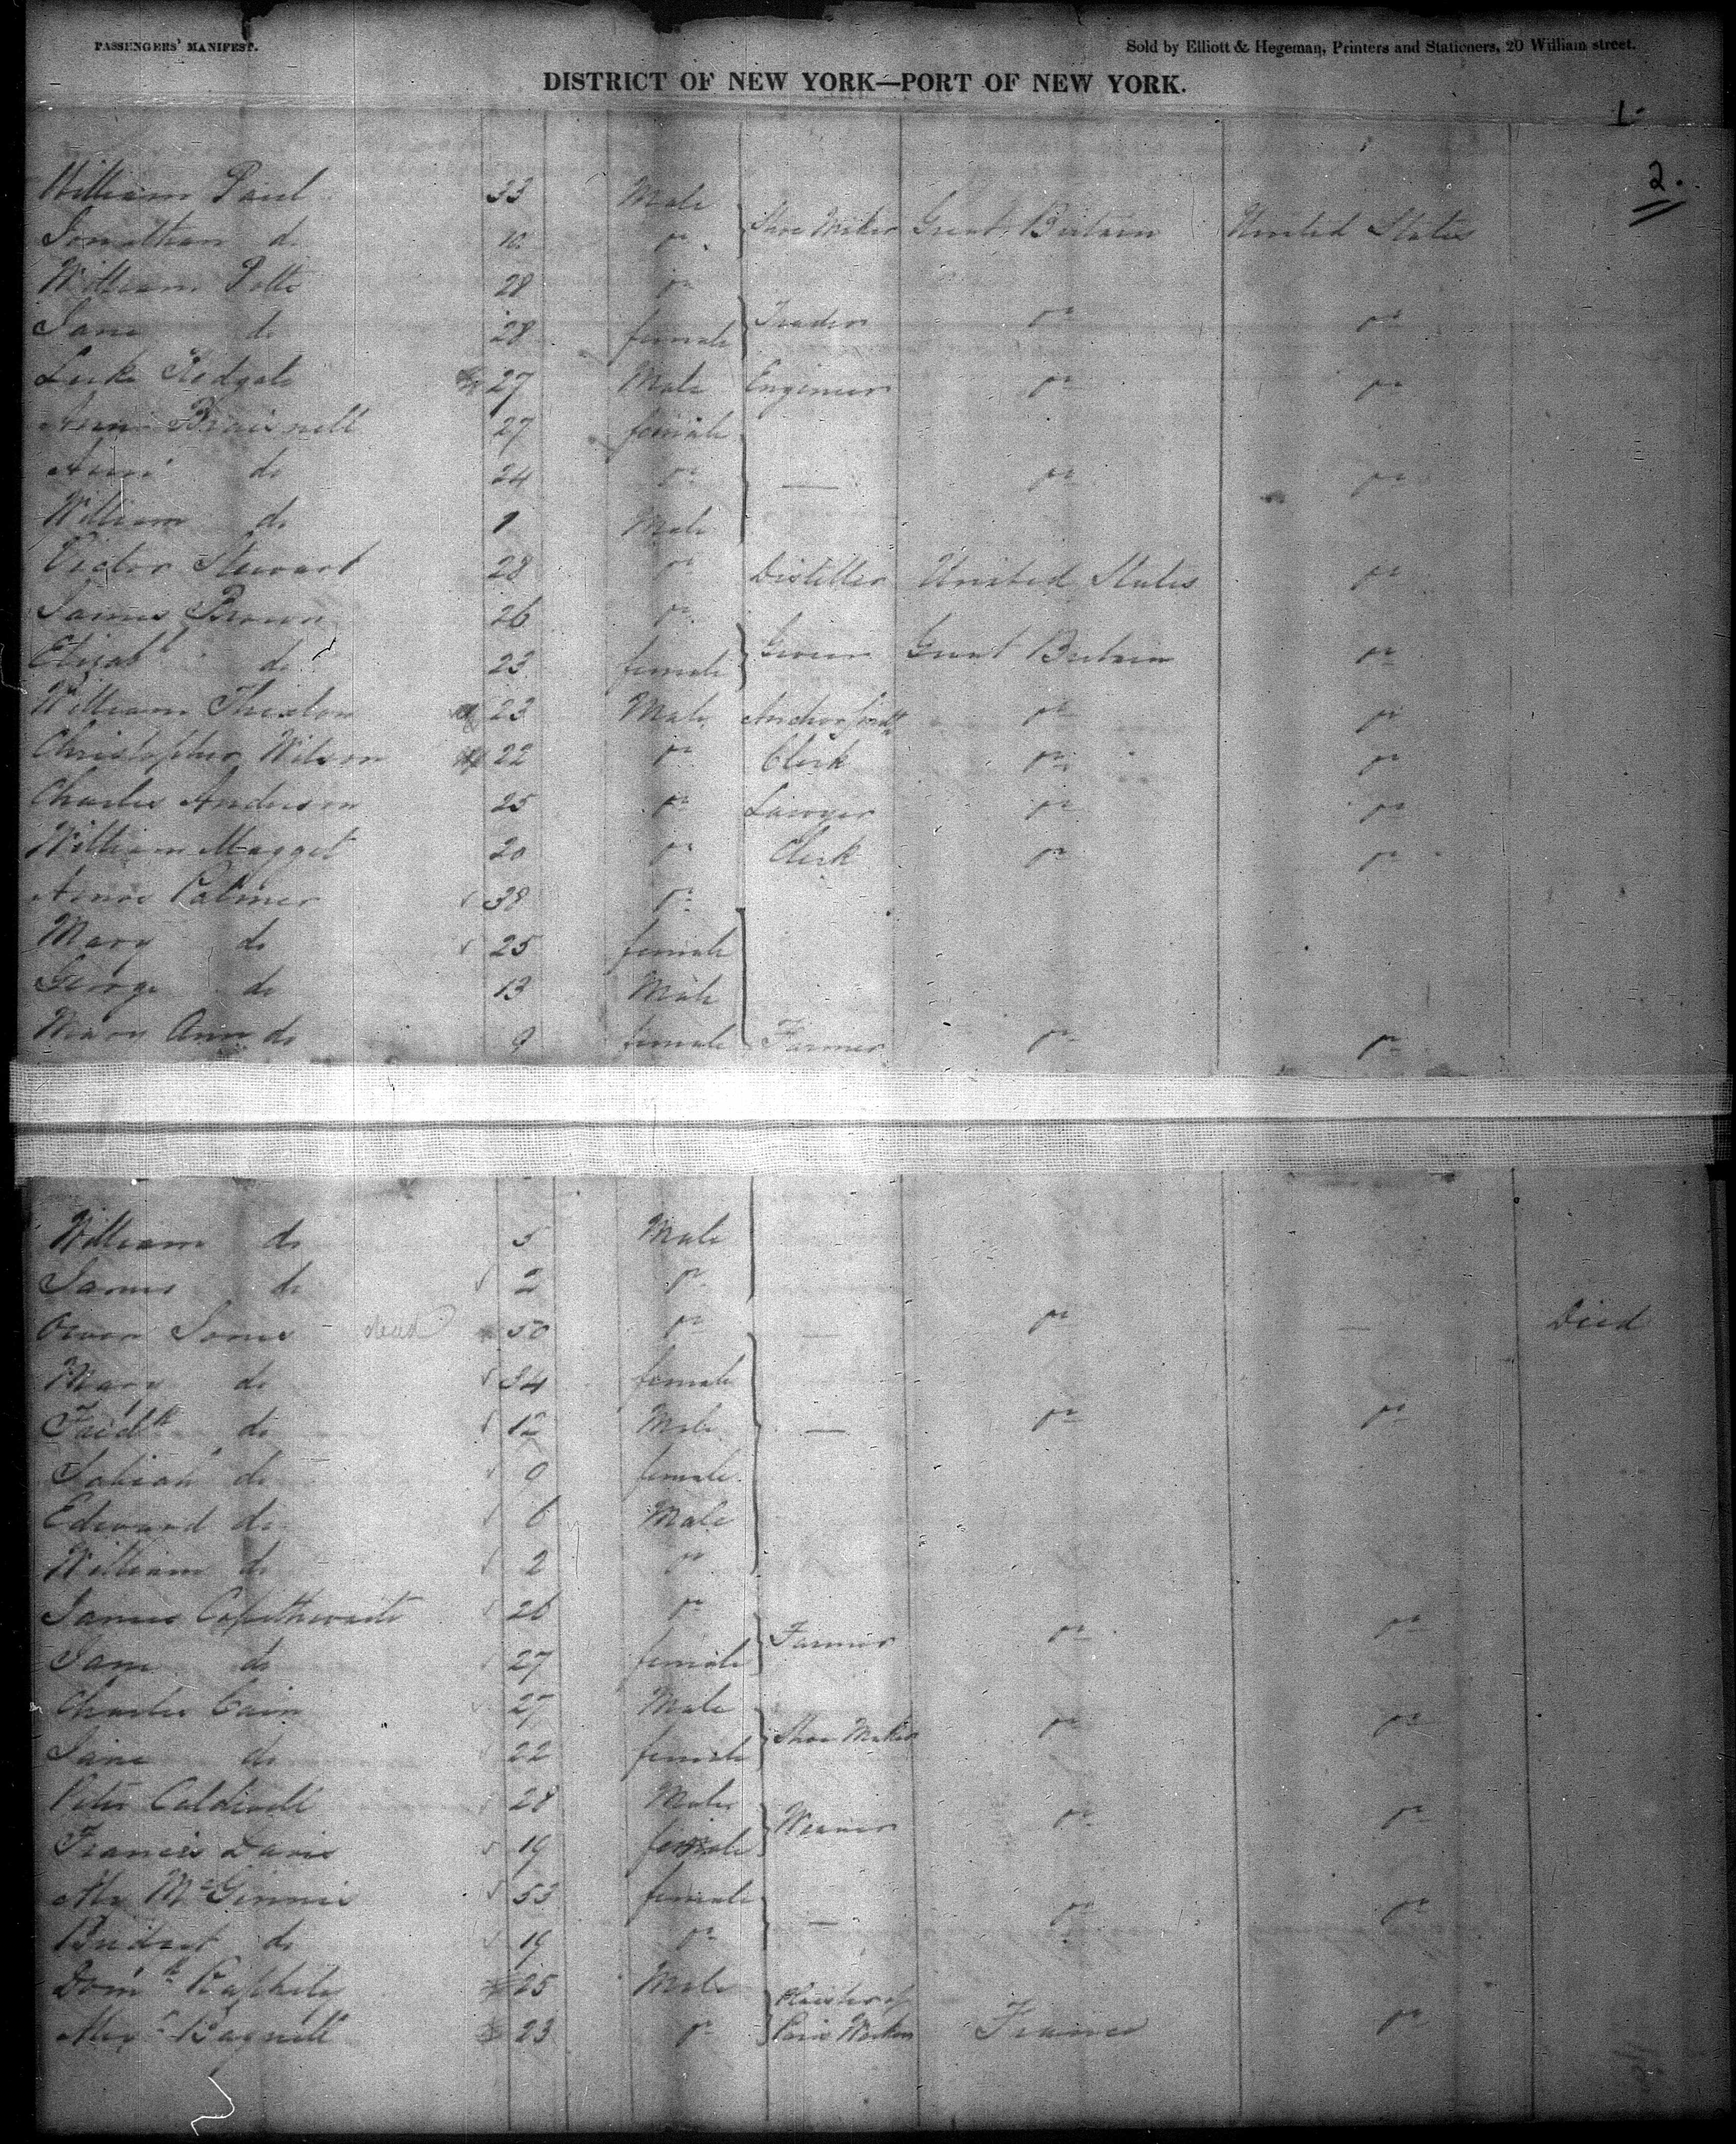 PASSENGERS' MANIFEST.
Sold by Elliott & Hegeman, Printers and Stationers, 20 William street.
DISTRICT OF NEW YORK—PORT OF NEW YORK.
1
2.
William Paul 33 Male
Jonathan do 10 do Shoe Maker Great Britain United States
William Potts 28 do
Jane do 28 female Trader do do
Luke Hedgate 27 Male Engineer do do
Ann 27 female
Ann do 24 do — do do
William do 1 Male
Victor Stewart 28 do Distiller United States do
James Brown 26 do
Elizabth do 23 female Great Britain do
William 23 Male Anchorsmith do do
Christopher Wilson 22 do Clerk do do
Charles Anderson 25 do Lawyer do do
William Magget 20 do Clerk do do
Amos Palmer 38 do
Mary do 25 female
George do 13 Male
Mary Ann do 9 female Farmer do do
William do 5 Male
James do 2 do
Owen Jones dead 50 do — do — Died
Mary do 34 female
Fredk do 12 Male — do do
do 9 female
Edward do 6 Male
William do 2 do
James 26 do
Jane do 27 female Farmer do do
Charles Cain 27 Male
Jane do 22 female Shoe Maker do do
Peter Caldwell 28 Male
Francis Davis 19 female Weaver do do
McGinnis 53 female
Bridget do 19 do — do do
Domk 25 Male Plaister of
Alexr Bagnell 23 do Paris Worker France do